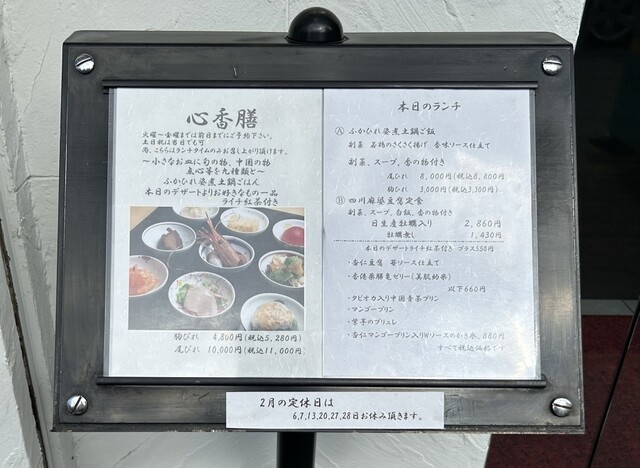 心香膳
火曜～金曜までは前日までにご予約下さい。
土日祝は当日でも可
尚、こちらはランチタイムのみお召し上がり頂けます。
～小さなお皿に旬の物、中国の物
点心等を九種類と～
ふかひれ姿煮土鍋ごはん
本日のデザートよりお好きなもの一品
ライチ紅茶付き
胸びれ 4,800円(税込5,280円)
尾びれ 10,000円(税込11,000円)
本日のランチ
Ⓐ ふかひれ姿煮土鍋ご飯
副菜 若鶏のさくさく揚げ 香味ソース仕立て
副菜、スープ、香の物付き
尾ひれ 8,000円(税込8,800円)
胸ひれ 3,000円(税込3,300円)
Ⓑ 四川麻婆豆腐定食
副菜、スープ、白飯、香の物付き
日生産牡蠣入り 2,860円
牡蠣無し 1,430円
本日のデザートライチ紅茶付き プラス550円
・杏仁豆腐 苺ソース仕立て
・香港薬膳亀ゼリー(美肌効果)
以下660円
・タピオカ入り中国青茶プリン
・マンゴープリン
・紫芋のブリュレ
・杏仁マンゴープリン入りWソースのかき氷、880円
すべて税込価格です
2月の定休日は
6,7,13,20,27,28日お休み頂きます。